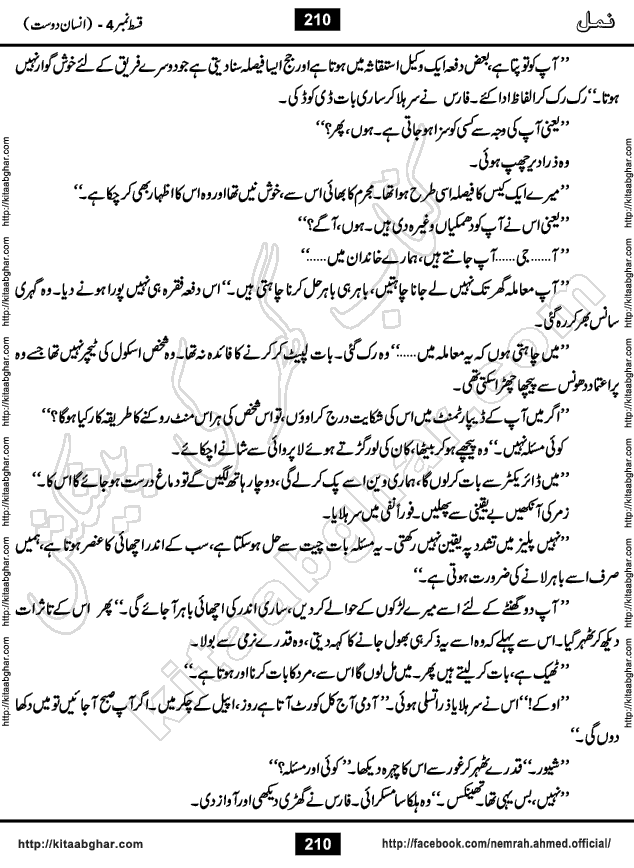 نمل 210 قسط نمبر 4 - (انسان دوست)
’’آپ کو تو پتا ہے، بعض دفعہ ایک وکیل استغاثہ میں ہوتا ہے اور جج ایسا فیصلہ سنا دیتی ہے جو دوسرے فریق کے لئے خوش گوار نہیں
ہوتا۔‘‘ رک رک کر الفاظ ادا کئے۔ فارس نے سر ہلا کر ساری بات ڈی کوڈ کی۔
’’یعنی آپ کی وجہ سے کسی کو سزا ہو جاتی ہے۔ ہوں، پھر؟‘‘
وہ ذرا دیر چپ ہوئی۔
’’میرے ایک کیس کا فیصلہ اسی طرح ہوا تھا۔ مجرم کا بھائی اس سے، خوش نہیں تھا اور وہ اس کا اظہار بھی کر چکا ہے۔‘‘
’’یعنی اس نے آپ کو دھمکیاں وغیرہ دی ہیں۔ ہوں، آگے؟‘‘
’’آ...... جی...... آپ جانتے ہیں، ہمارے خاندان میں......‘‘
’’آپ معاملہ گھر تک نہیں لے جانا چاہتیں، باہر ہی باہر حل کرنا چاہتی ہیں۔‘‘ اس دفعہ فقرہ ہی نہیں پورا ہونے دیا۔ وہ گہری
سانس بھر کر رہ گئی۔
’’میں چاہتی ہوں کہ یہ معاملہ میں......‘‘ وہ رک گئی۔ بات لپیٹ کر کرنے کا فائدہ نہ تھا۔ وہ شخص اسکول کی ٹیچر نہیں تھا جسے وہ
پراعتماد دھونس سے پیچھا چھڑا سکتی تھی۔
’’اگر میں آپ کے ڈیپارٹمنٹ میں اس کی شکایت درج کراوؤں، تو اس شخص کی ہراسمنٹ روکنے کا طریقہ کار کیا ہوگا؟‘‘
کوئی مسئلہ نہیں۔‘‘ وہ پیچھے ہو کر بیٹھا، کان کی لو رگڑتے ہوئے لاپروائی سے شانے اچکائے۔
’’میں ڈائریکٹر سے بات کر لوں گا، ہماری دین اسے پک کر لے گی، دو چار ہاتھ لگیں گے تو دماغ درست ہو جائے گا اس کا۔‘‘
زمر کی آنکھیں بے یقینی سے پھیلیں۔ فوراً نفی میں سر ہلایا۔
’’نہیں پلیز میں تشدد پہ یقین نہیں رکھتی۔ یہ مسئلہ بات چیت سے حل ہو سکتا ہے، سب کے اندر اچھائی کا عنصر ہوتا ہے، ہمیں
صرف اسے باہر لانے کی ضرورت ہوتی ہے۔‘‘
’’آپ دو گھنٹے کے لئے اسے میرے لڑکوں کے حوالے کر دیں، ساری اندر کی اچھائی باہر آ جائے گی۔‘‘ پھر اس کے تاثرات
دیکھ کر ٹھہر گیا۔ اس سے پہلے کہ وہ اسے یہ ذکر ہی بھول جانے کا کہہ دیتی، وہ قدرے نرمی سے بولا۔
’’ٹھیک ہے، بات کر لیتے ہیں پھر۔ میں مل لوں گا اس سے، مرد کا بات کرنا اور ہوتا ہے۔‘‘
’’اوکے!‘‘ اس نے سر ہلایا ذرا تسلی ہوئی۔ ’’آدمی آج کل کورٹ آتا ہے روز، اپیل کے چکر میں۔ اگر آپ صبح آ جائیں تو میں دکھا
دوں گی۔‘‘
’’شیور۔‘‘ قدرے ٹھہر کر غور سے اس کا چہرہ دیکھا۔ ’’کوئی اور مسئلہ؟‘‘
’’نہیں، بس یہی تھا۔ تھینکس۔‘‘ وہ ہلکا سا مسکرائی۔ فارس نے گھڑی دیکھی اور آواز دی۔
http://kitaabghar.com 210 http://facebook.com/nemrah.ahmed.official/
http://kitaabghar.com http://kitaabghar.com http://kitaabghar.com http://kitaabghar.com http://kitaabghar.com http://kitaabghar.com
http://kitaabghar.com http://kitaabghar.com http://kitaabghar.com http://kitaabghar.com http://kitaabghar.com http://kitaabghar.com
کتاب گھر کی پیشکش
kitaabghar.com